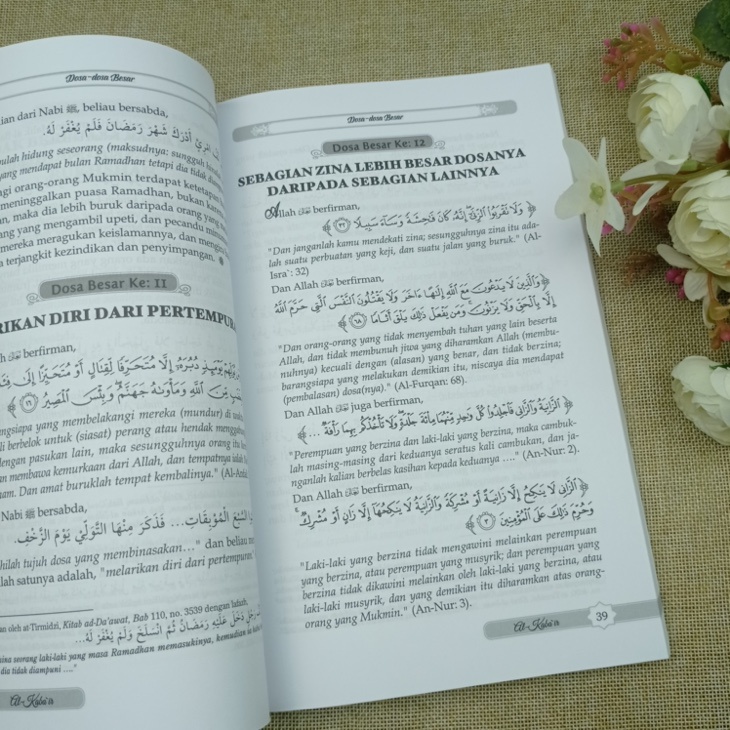 Dosa-dosa Besar
dari Nabi ﷺ, beliau bersabda,
أَدْرَكَ شَهْرَ رَمَضَانَ فَلَمْ يُغْفَرْ لَهُ.
hidung seseorang (maksudnya: sungguh
yang mendapat bulan Ramadhan tetapi dia tidak
orang-orang Mukmin terdapat ketetapan
meninggalkan puasa Ramadhan, bukan karena
maka dia lebih buruk daripada orang yang
yang mengambil upeti, dan pecandu
mereka meragukan keislamannya, dan
terjangkit kezindikan dan penyimpangan.
Dosa Besar Ke: 11
DIRI DARI
ﷻ berfirman,
دُبُرَهُ إِلَّا مُتَحَرِّفًا لِقِتَالٍ أَوْ مُتَحَيِّزًا إِلَىٰ
مِنَ اللَّهِ وَمَأْوَاهُ جَهَنَّمُ وَبِئْسَ الْمَصِيرُ ﴿١٦﴾
yang membelakangi mereka (mundur) di
berbelok untuk (siasat) perang atau hendak
dengan pasukan lain, maka sesungguhnya orang itu
membawa kemurkaan dari Allah, dan tempatnya ialah
Dan amat buruklah tempat kembalinya."
Nabi ﷺ bersabda,
السَّبْعَ الْمُوبِقَاتِ... فَذَكَرَ مِنْهَا التَّوَلِّيَ يَوْمَ الزَّحْفِ.
tujuh dosa yang membinasakan..." dan beliau
satunya adalah, "melarikan diri dari pertempuran."
oleh at-Tirmidzi, Kitab ad-Da'awat, Bab 110, no. 3539 dengan lafazh,
دَخَلَ عَلَيْهِ رَمَضَانُ ثُمَّ انْسَلَخَ قَبْلَ أَنْ يُغْفَرَ لَهُ...
seorang laki-laki yang masa Ramadhan memasukinya, kemudian
dia tidak diampuni ...."
Al-Kaba'ir
Dosa-dosa Besar
Dosa Besar Ke: 12
SEBAGIAN ZINA LEBIH BESAR DOSANYA
DARIPADA SEBAGIAN LAINNYA
Allah ﷻ berfirman,
﴿وَلَا تَقْرَبُوا الزِّنَىٰ إِنَّهُ كَانَ فَاحِشَةً وَسَاءَ سَبِيلًا ﴿٣٢﴾﴾
"Dan janganlah kamu mendekati zina; sesungguhnya zina itu ada-
lah suatu perbuatan yang keji, dan suatu jalan yang buruk." (Al-
Isra`: 32)
Dan Allah ﷻ berfirman,
﴿وَالَّذِينَ لَا يَدْعُونَ مَعَ اللَّهِ إِلَٰهًا ءَاخَرَ وَلَا يَقْتُلُونَ النَّفْسَ الَّتِي حَرَّمَ اللَّهُ
إِلَّا بِالْحَقِّ وَلَا يَزْنُونَ وَمَن يَفْعَلْ ذَٰلِكَ يَلْقَ أَثَامًا ﴿٦٨﴾﴾
"Dan orang-orang yang tidak menyembah tuhan yang lain beserta
Allah, dan tidak membunuh jiwa yang diharamkan Allah (membu-
nuhnya) kecuali dengan (alasan) yang benar, dan tidak berzina;
barangsiapa yang melakukan demikian itu, niscaya dia mendapat
(pembalasan) dosa(nya)." (Al-Furqan: 68).
Dan Allah ﷻ juga berfirman,
﴿الزَّانِيَةُ وَالزَّانِي فَاجْلِدُوا كُلَّ وَاحِدٍ مِّنْهُمَا مِائَةَ جَلْدَةٍ وَلَا تَأْخُذْكُم بِهِمَا رَأْفَةٌ ...﴾
"Perempuan yang berzina dan laki-laki yang berzina, maka cambuk-
lah masing-masing dari keduanya seratus kali cambukan, dan ja-
nganlah kalian berbelas kasihan kepada keduanya ...." (An-Nur: 2).
Dan Allah ﷻ berfirman,
﴿الزَّانِي لَا يَنكِحُ إِلَّا زَانِيَةً أَوْ مُشْرِكَةً وَالزَّانِيَةُ لَا يَنكِحُهَا إِلَّا زَانٍ أَوْ مُشْرِكٌ
وَحُرِّمَ ذَٰلِكَ عَلَى الْمُؤْمِنِينَ ﴿٣﴾﴾
"Laki-laki yang berzina tidak mengawini melainkan perempuan
yang berzina, atau perempuan yang musyrik; dan perempuan yang
berzina tidak dikawini melainkan oleh laki-laki yang berzina, atau
laki-laki musyrik, dan yang demikian itu diharamkan atas orang-
orang yang Mukmin." (An-Nur: 3).
Al-Kaba'ir
39